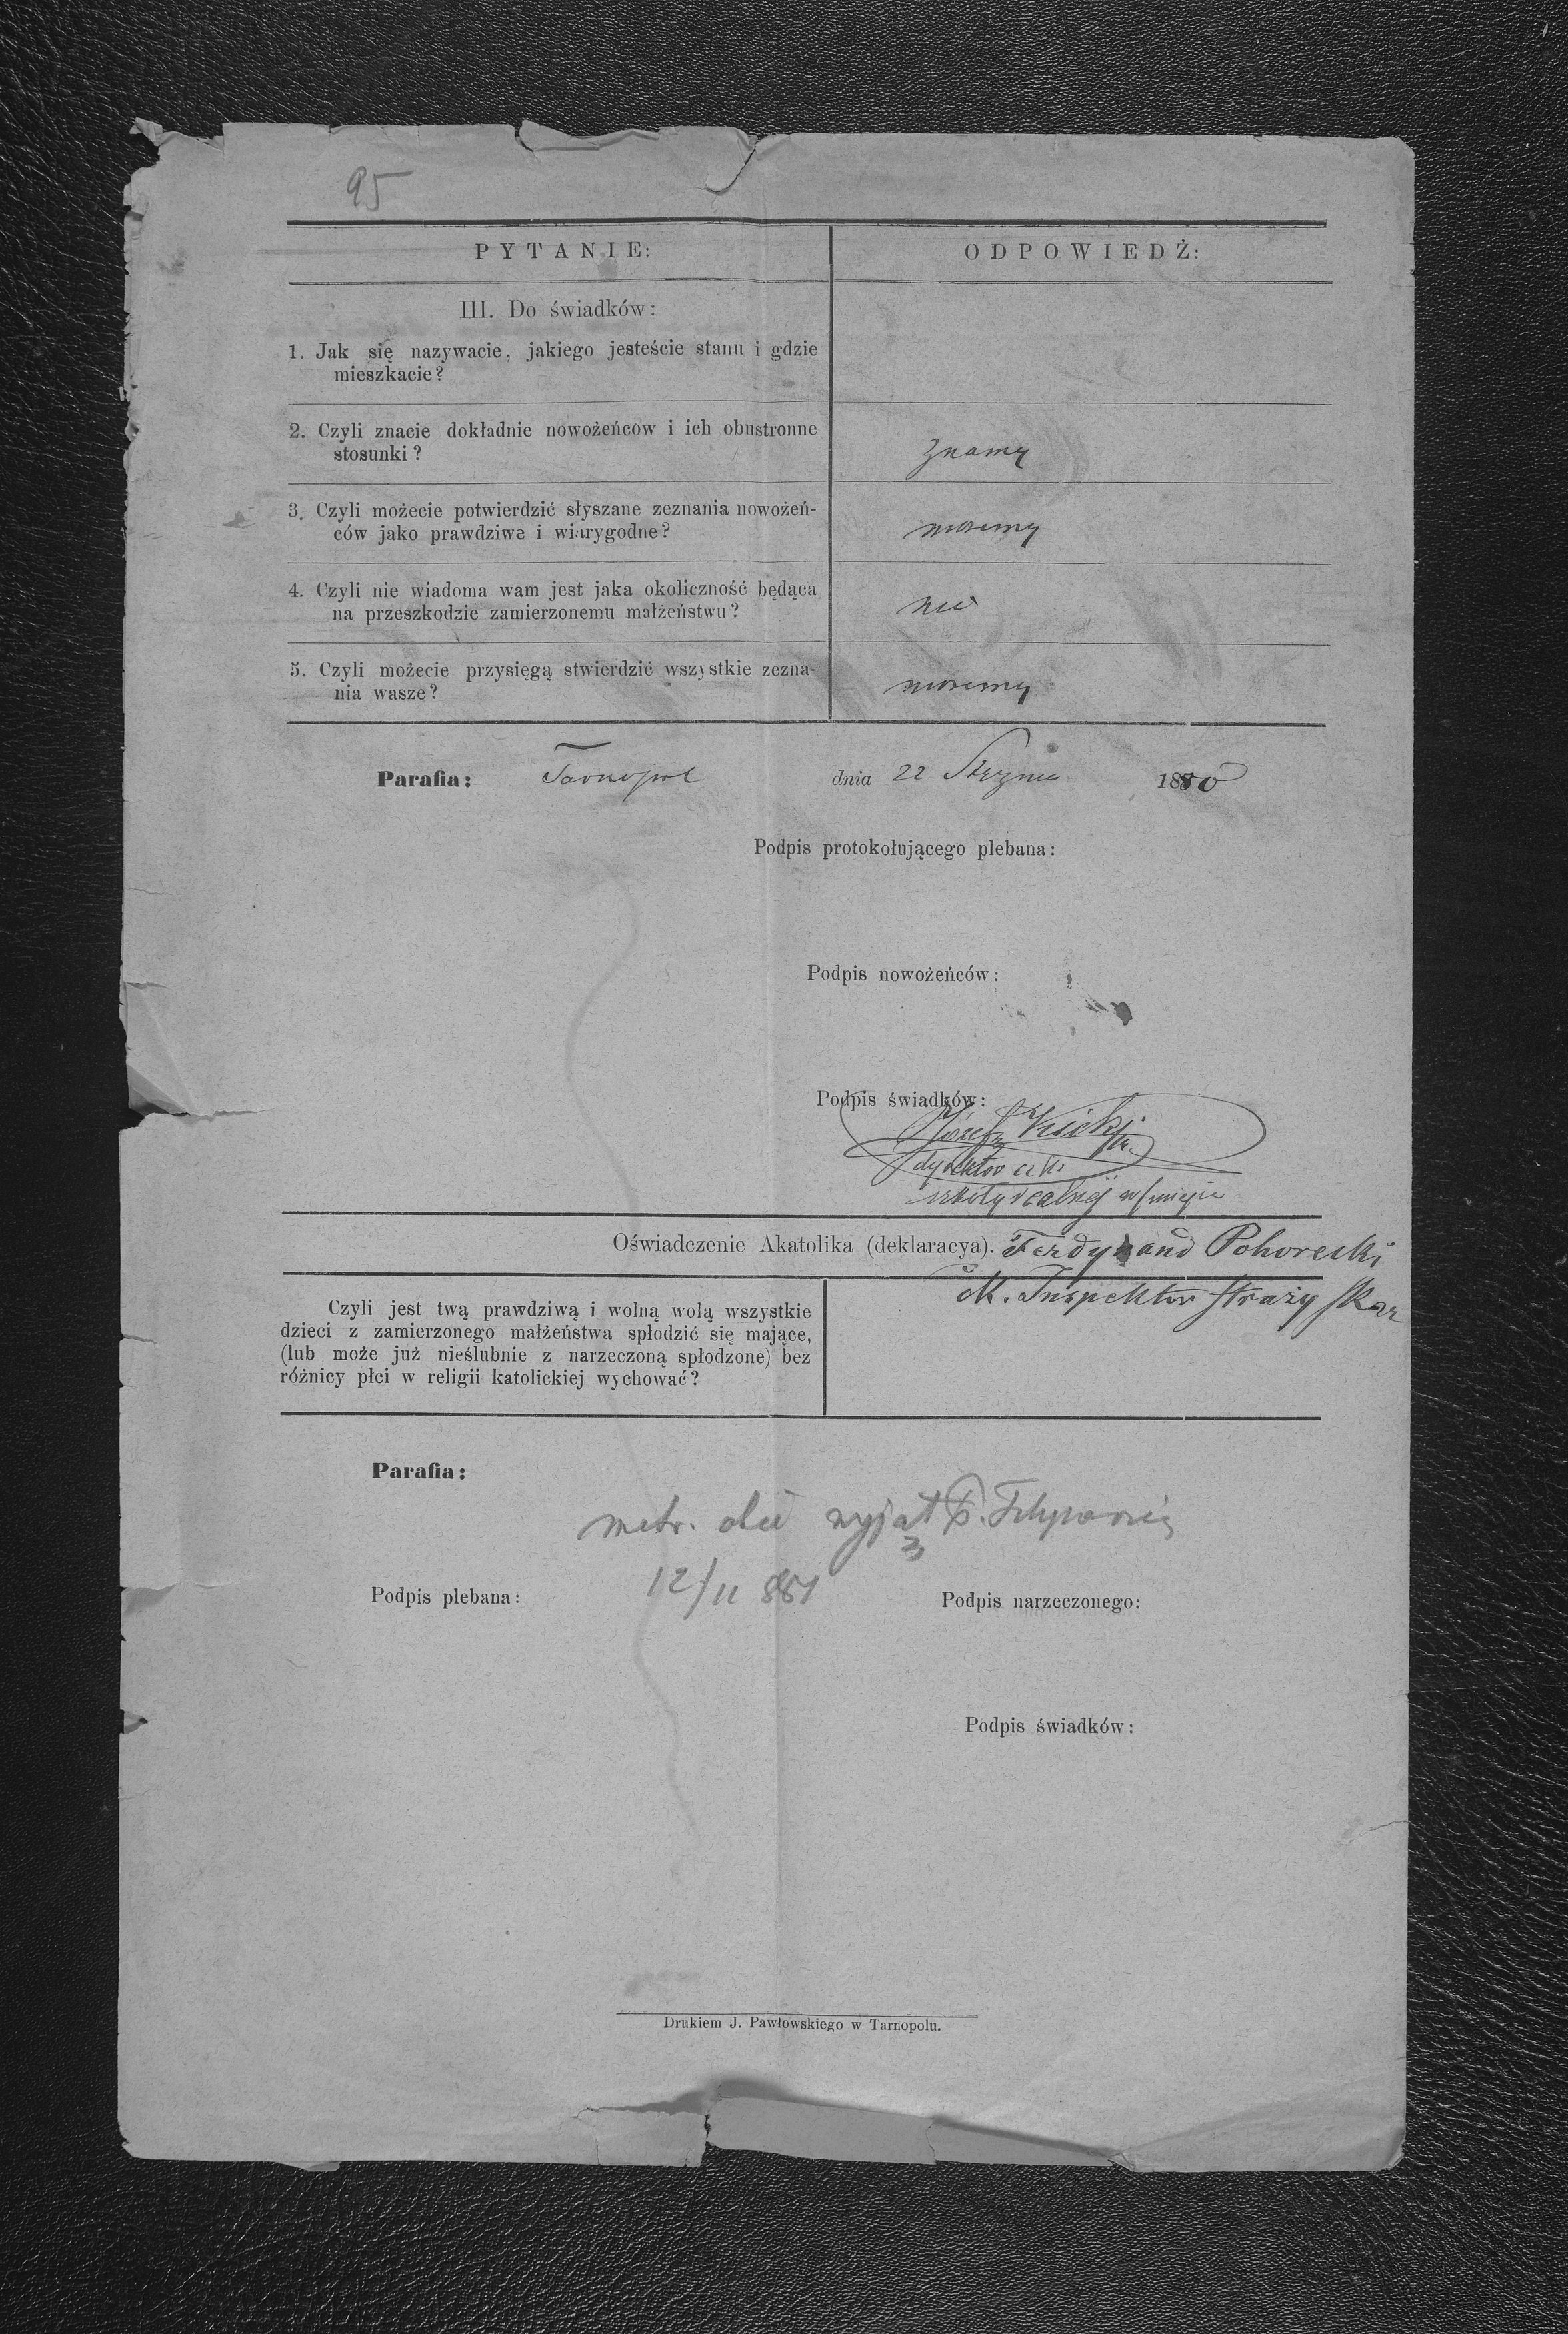 95
PYTANIE:
ODPOWIEDŹ:
III. Do świadków:
1. Jak się nazywacie, jakiego jesteście stanu i gdzie
mieszkacie?
2. Czyli znacie dokładnie nowożeńców i ich obustronne
stosunki?
znamy
3. Czyli możecie potwierdzić słyszane zeznania nowożeń-
ców jako prawdziwe i wiarygodne?
możemy
4. Czyli nie wiadoma wam jest jaka okoliczność będąca
na przeszkodzie zamierzonemu małżeństwu?
nie
5. Czyli możecie przysięgą stwierdzić wszystkie zezna-
nia wasze?
możemy
Parafia: Tarnopol dnia 22 Stycznia 1880
Podpis protokołującego plebana:
Podpis nowożeńców:
Podpis świadków:
Józef
dyrektor
szkoły realnej
Oświadczenie Akatolika (deklaracya). Ferdynand Pohorecki
Inspektor straży skar
Czyli jest twą prawdziwą i wolną wolą wszystkie
dzieci z zamierzonego małżeństwa spłodzić się mające,
(lub może już nieślubnie z narzeczoną spłodzone) bez
różnicy płci w religii katolickiej wychować?
Parafia:
metr. wyjął
12/11 881
Podpis plebana:
Podpis narzeczonego:
Podpis świadków:
Drukiem J. Pawłowskiego w Tarnopolu.